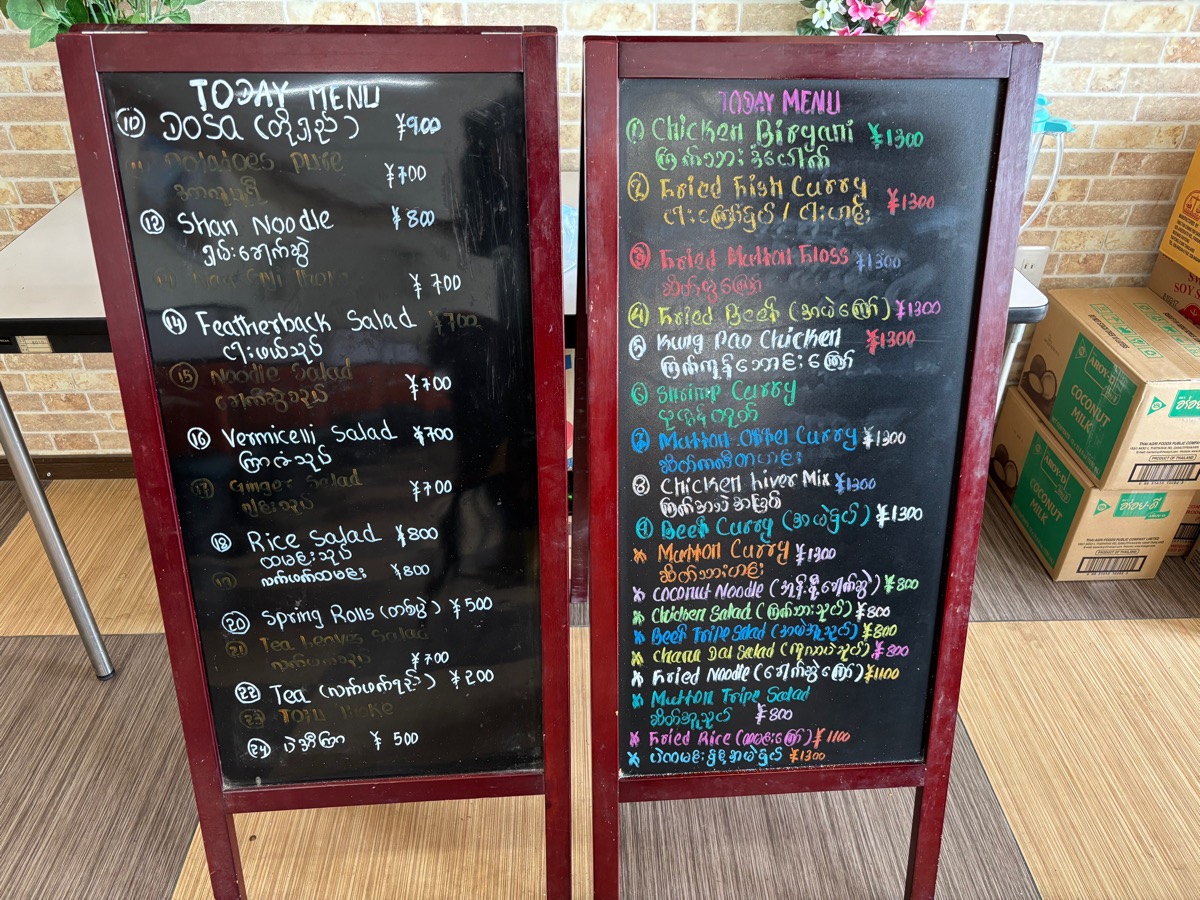 TODAY MENU
⑩ DOSA (တိုရှည်) ¥900
Potatoes Pure ¥700
⑫ Shan Noodle ¥800
ရှမ်းခေါက်ဆွဲ
¥700
⑭ Featherback Salad ¥700
ငါးဖယ်သုပ်
⑮ Noodle Salad ¥700
ခေါက်ဆွဲသုပ်
⑯ Vermicelli Salad ¥700
ကြာဇံသုပ်
⑰ Ginger Salad ¥700
ဂျင်းသုပ်
⑱ Rice Salad ¥800
ထမင်းသုပ်
⑲ လက်ဖက်ထမင်း ¥800
⑳ Spring Rolls (တစ်ပွဲ) ¥500
㉑ Tea Leaves Salad
လက်ဖက်သုပ် ¥700
㉒ Tea (လက်ဖက်ရည်) ¥200
㉓ TOFU
㉔ ¥ 500
TODAY MENU
① Chicken Biryani ¥1300
ကြက်သား ဒံပေါက်
② Fried Fish Curry ¥1300
ငါးကြော်နှပ် / ငါးဟင်း
③ Fried Mutton Floss ¥1300
ဆိတ်မွှကြော်
④ Fried Beef (အမဲကြော်) ¥1300
⑤ Kung Pao Chicken ¥1300
ကြက်ကုန်းဘောင်ကြော်
⑥ Shrimp Curry
⑦ Mutton Offel Curry ¥1300
ဆိတ်ကလီစာဟင်း
⑧ Chicken Liver Mix ¥1300
ကြက်အသဲအမြစ်
⑨ Beef Curry (အမဲနှပ်) ¥1300
Mutton Curry ¥1300
ဆိတ်သားဟင်း
Coconut Noodle (အုန်းနို့ခေါက်ဆွဲ) ¥800
Chicken Salad (ကြက်သားသုပ်) ¥800
Beef Tripe Salad ¥800
Chana Dal Salad (ကုလားပဲသုပ်) ¥800
Fried Noodle (ခေါက်ဆွဲကြော်) ¥1100
Mutton Tripe Salad
¥800
Fried Rice (ထမင်းကြော်) ¥1100
¥1300
AROY-D
COCONUT
MILK
อร่อย-ดี
THAI AGRI FOODS PUBLIC COMPANY LIMITED
PRODUCT OF THAILAND
AROY-D
COCONUT
MILK
อร่อย-ดี
THAI AGRI FOODS PUBLIC COMPANY LIMITED
PRODUCT OF THAILAND